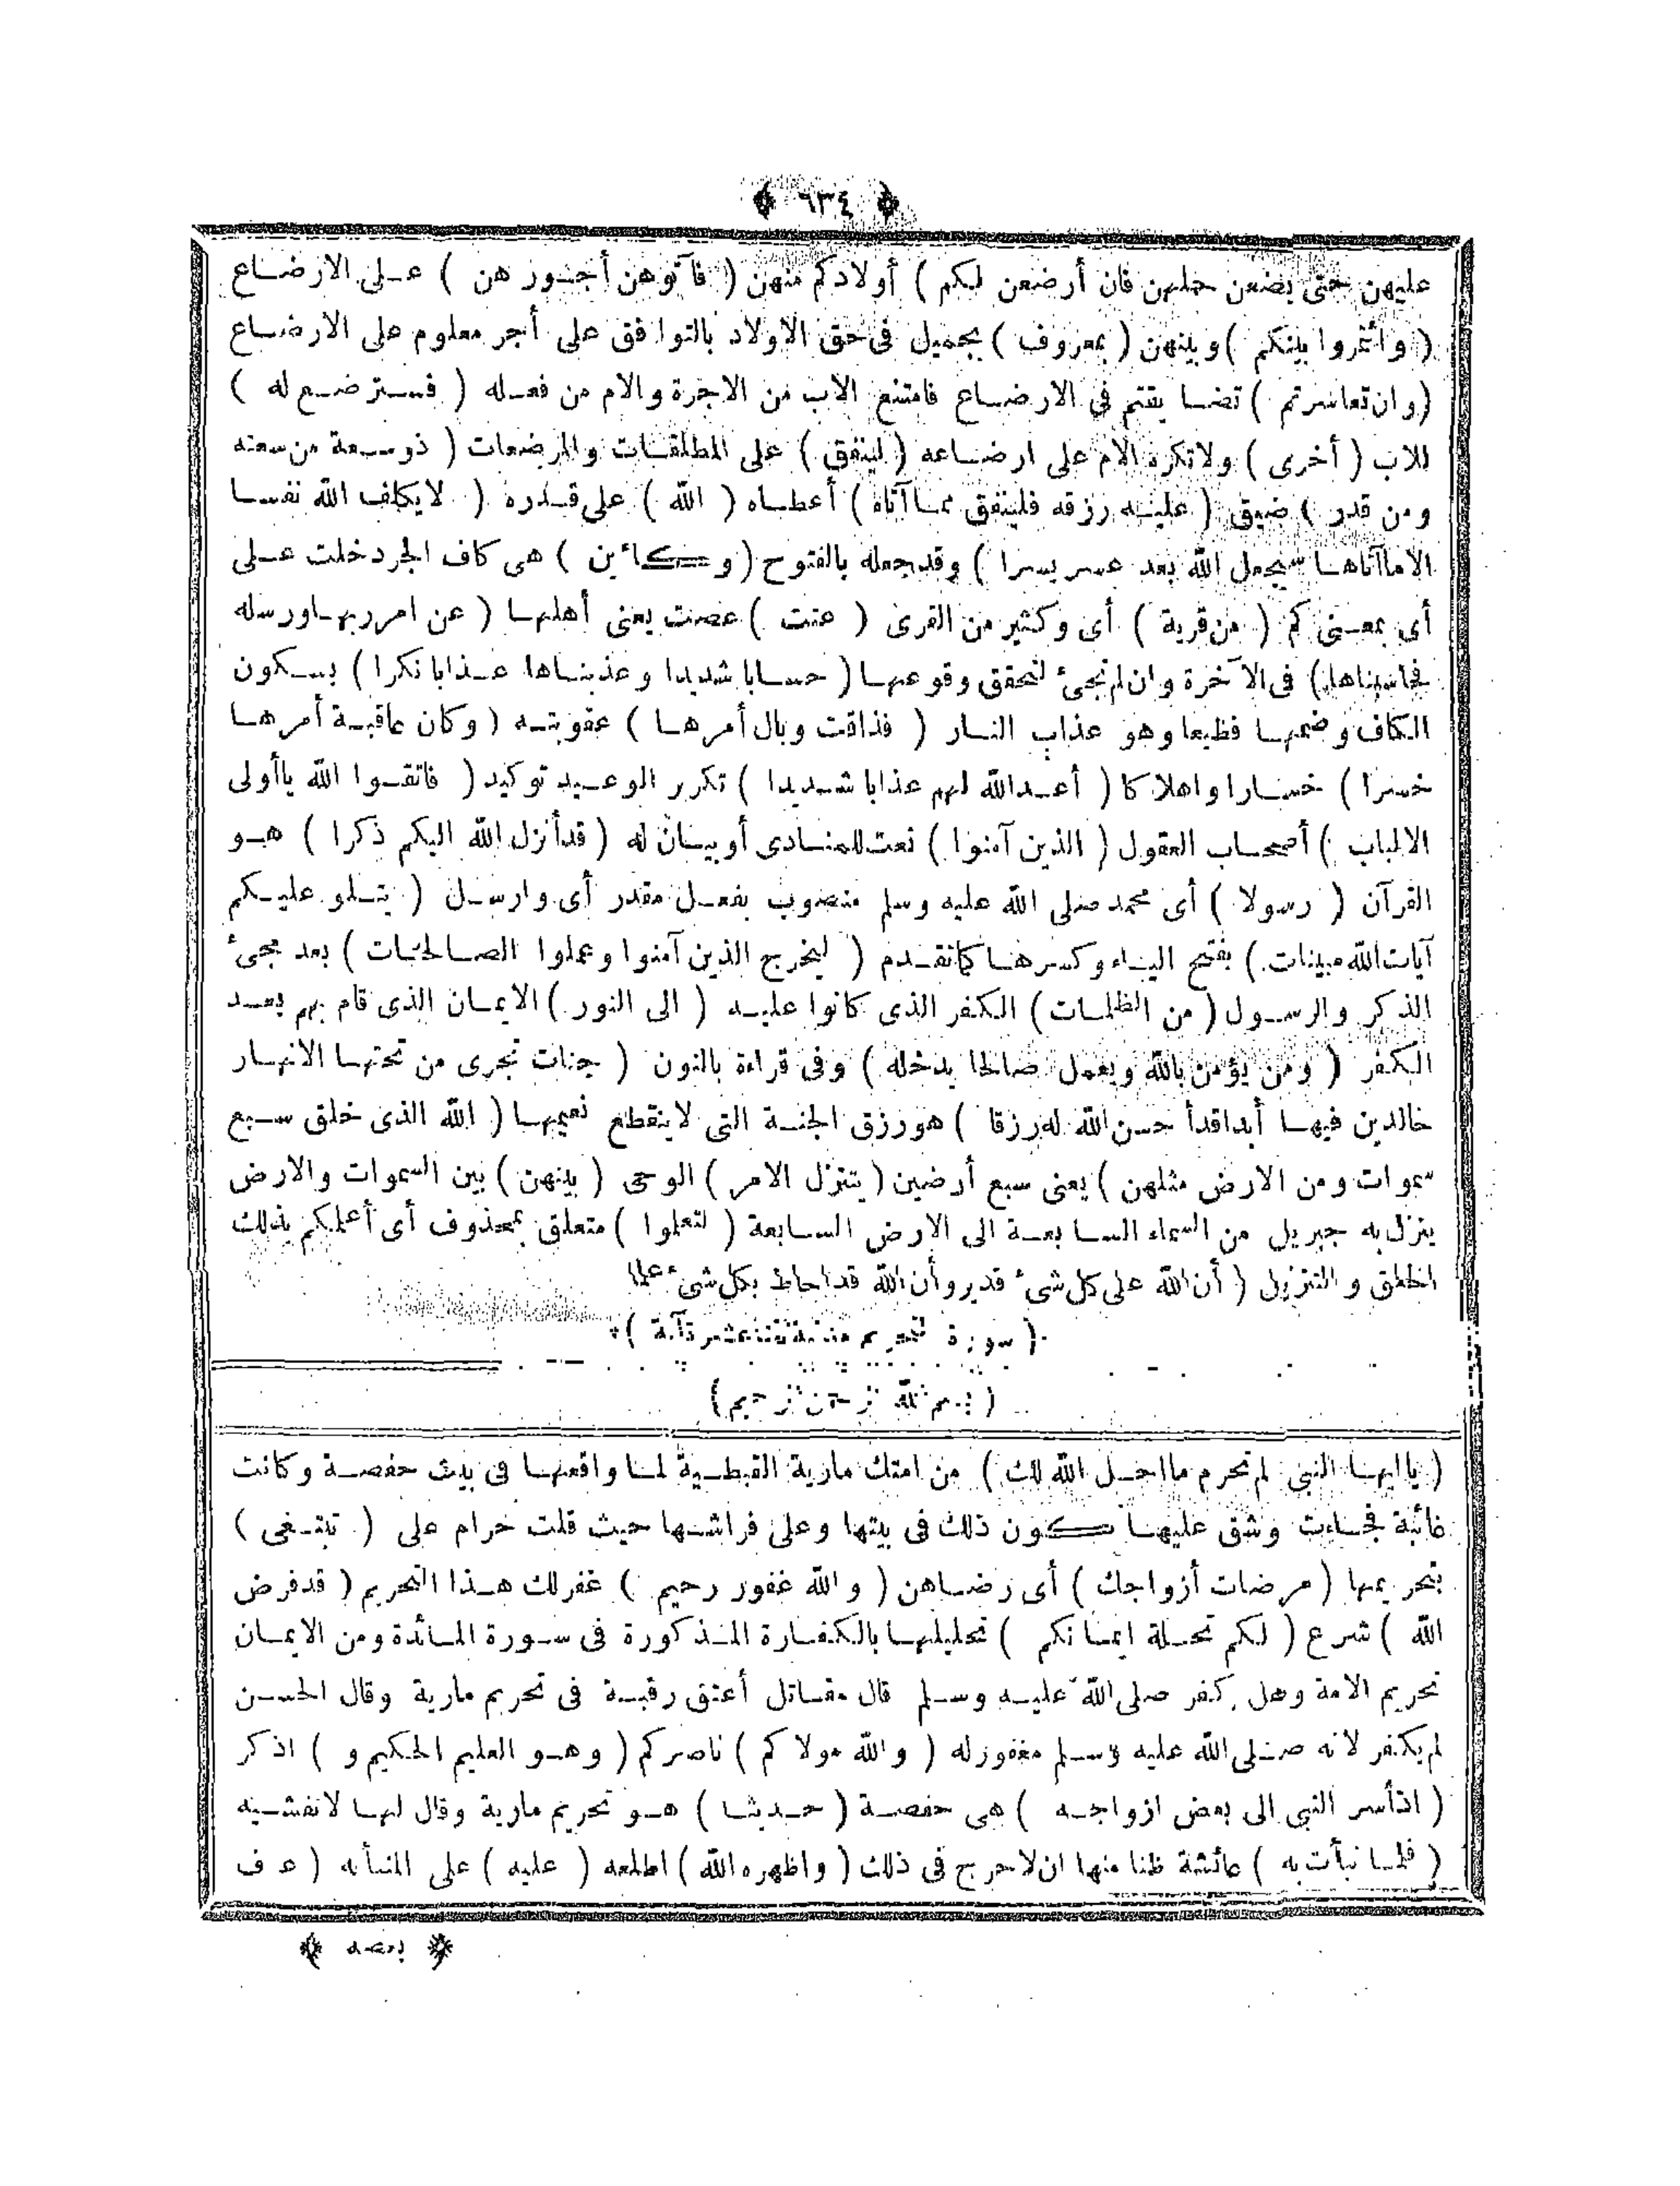 ﴿ ٦٣٤ ﴾
عليهن حتى يضعن حملهن فان أرضعن لكم ) أولادكم منهن ( فآتوهن أجورهن ) على الارضاع
( وأتمروا بينكم ) وبينهن ( بمعروف ) بجميل فى حق الاولاد بالتوافق على أجر معلوم على الارضاع
( وان تعاسرتم ) تضايقتم فى الارضاع فامتنع الاب من الاجرة والام من فعله ( فسترضع له )
للاب ( أخرى ) ولاتكره الام على ارضاعه ( لينفق ) على المطلقات والمرضعات ( ذوسعة من سعته
ومن قدر ) ضيق ( عليه رزقه فلينفق مماآتاه ) أعطاه ( الله ) على قدره ( لايكلف الله نفسا
الاماآتاها سيجعل الله بعد عسر يسرا ) وقدجعله بالفتوح ( وكائين ) هى كاف الجر دخلت على
أى بمعنى كم ( من قرية ) أى وكثير من القرى ( عتت ) عصت يعنى أهلها ( عن امر ربها ورسله
فحاسبناها ) فى الآخرة وان لم تجئ لتحقق وقوعها ( حسابا شديدا وعذبناها عذابا نكرا ) بسكون
الكاف وضمها فظيعا وهو عذاب النار ( فذاقت وبال أمرها ) عقوبته ( وكان عاقبة أمرها
خسرا ) خسارا واهلاكا ( أعدالله لهم عذابا شديدا ) تكرير الوعيد توكيد ( فاتقوا الله ياأولى
الالباب ) أصحاب العقول ( الذين آمنوا ) نعت للمنادى أو بيان له ( قدأنزل الله اليكم ذكرا ) هو
القرآن ( رسولا ) أى محمد صلى الله عليه وسلم منصوب بفعل مقدر أى وارسل ( يتلو عليكم
آيات الله مبينات ) بفتح الياء وكسرها كماتقدم ( ليخرج الذين آمنوا وعملوا الصالحات ) بعد مجئ
الذكر والرسول ( من الظلمات ) الكفر الذى كانوا عليه ( الى النور ) الايمان الذى قام بهم بعد
الكفر ( ومن يؤمن بالله ويعمل صالحا يدخله ) وفى قراءة بالنون ( جنات تجرى من تحتها الانهار
خالدين فيها أبداقدأ حسن الله له رزقا ) هو رزق الجنة التى لاينقطع نعيمها ( الله الذى خلق سبع
سموات ومن الارض مثلهن ) يعنى سبع أرضين ( يتنزل الامر ) الوحى ( بينهن ) بين السموات والارض
ينزل به جبريل من السماء السابعة الى الارض السابعة ( لتعلموا ) متعلق بمحذوف أى أعلمكم بذلك
الخلق و التنزيل ( أن الله على كل شئ قدير وأن الله قداحاط بكل شئ علما
( سورة التحريم مدنية اثنتا عشرة آية )
( بسم الله الرحمن الرحيم )
( ياايها النبى لم تحرم مااحل الله لك ) من امتك مارية القبطية لما واقعها فى بيت حفصة وكانت
غائبة فجاءت وشق عليها كون ذلك فى بيتها وعلى فراشها حيث قلت حرام على ( تبتغى )
بتحريمها ( مرضات أزواجك ) أى رضاهن ( والله غفور رحيم ) غفرلك هذا التحريم ( قدفرض
الله ) شرع ( لكم تحلة ايمانكم ) تحليلها بالكفارة المذكورة فى سورة المائدة ومن الايمان
تحريم الامة وهل كفر صلى الله عليه وسلم قال مقاتل أعتق رقبة فى تحريم مارية وقال الحسن
لم يكفر لانه صلى الله عليه وسلم مغفورله ( والله مولاكم ) ناصركم ( وهو العليم الحكيم و ) اذكر
( اذأسر النبى الى بعض ازواجه ) هى حفصة ( حديثا ) هو تحريم مارية وقال لها لاتفشيه
( فلما نبأت به ) عائشة ظنا منها ان لاحرج فى ذلك ( واظهره الله ) اطلعه ( عليه ) على المنبأبه ( عرف
﴿ بعضه ﴾